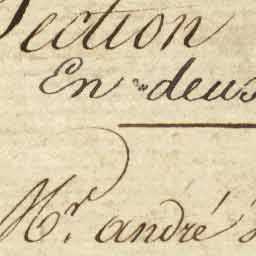 Section
En deux
Mr. andré